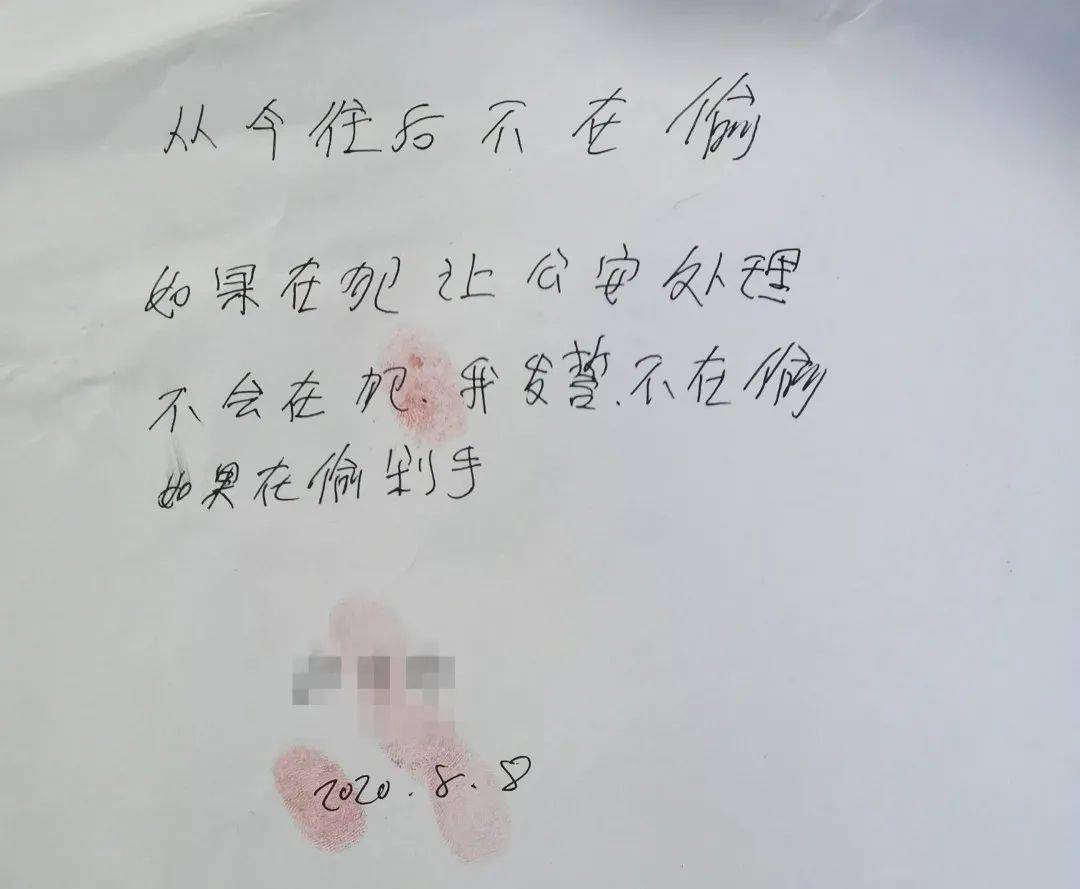 从今往后不在偷
如果在犯让公安处理
不会在犯.我发誓.不在偷
如果在偷剁手
2020.8.8